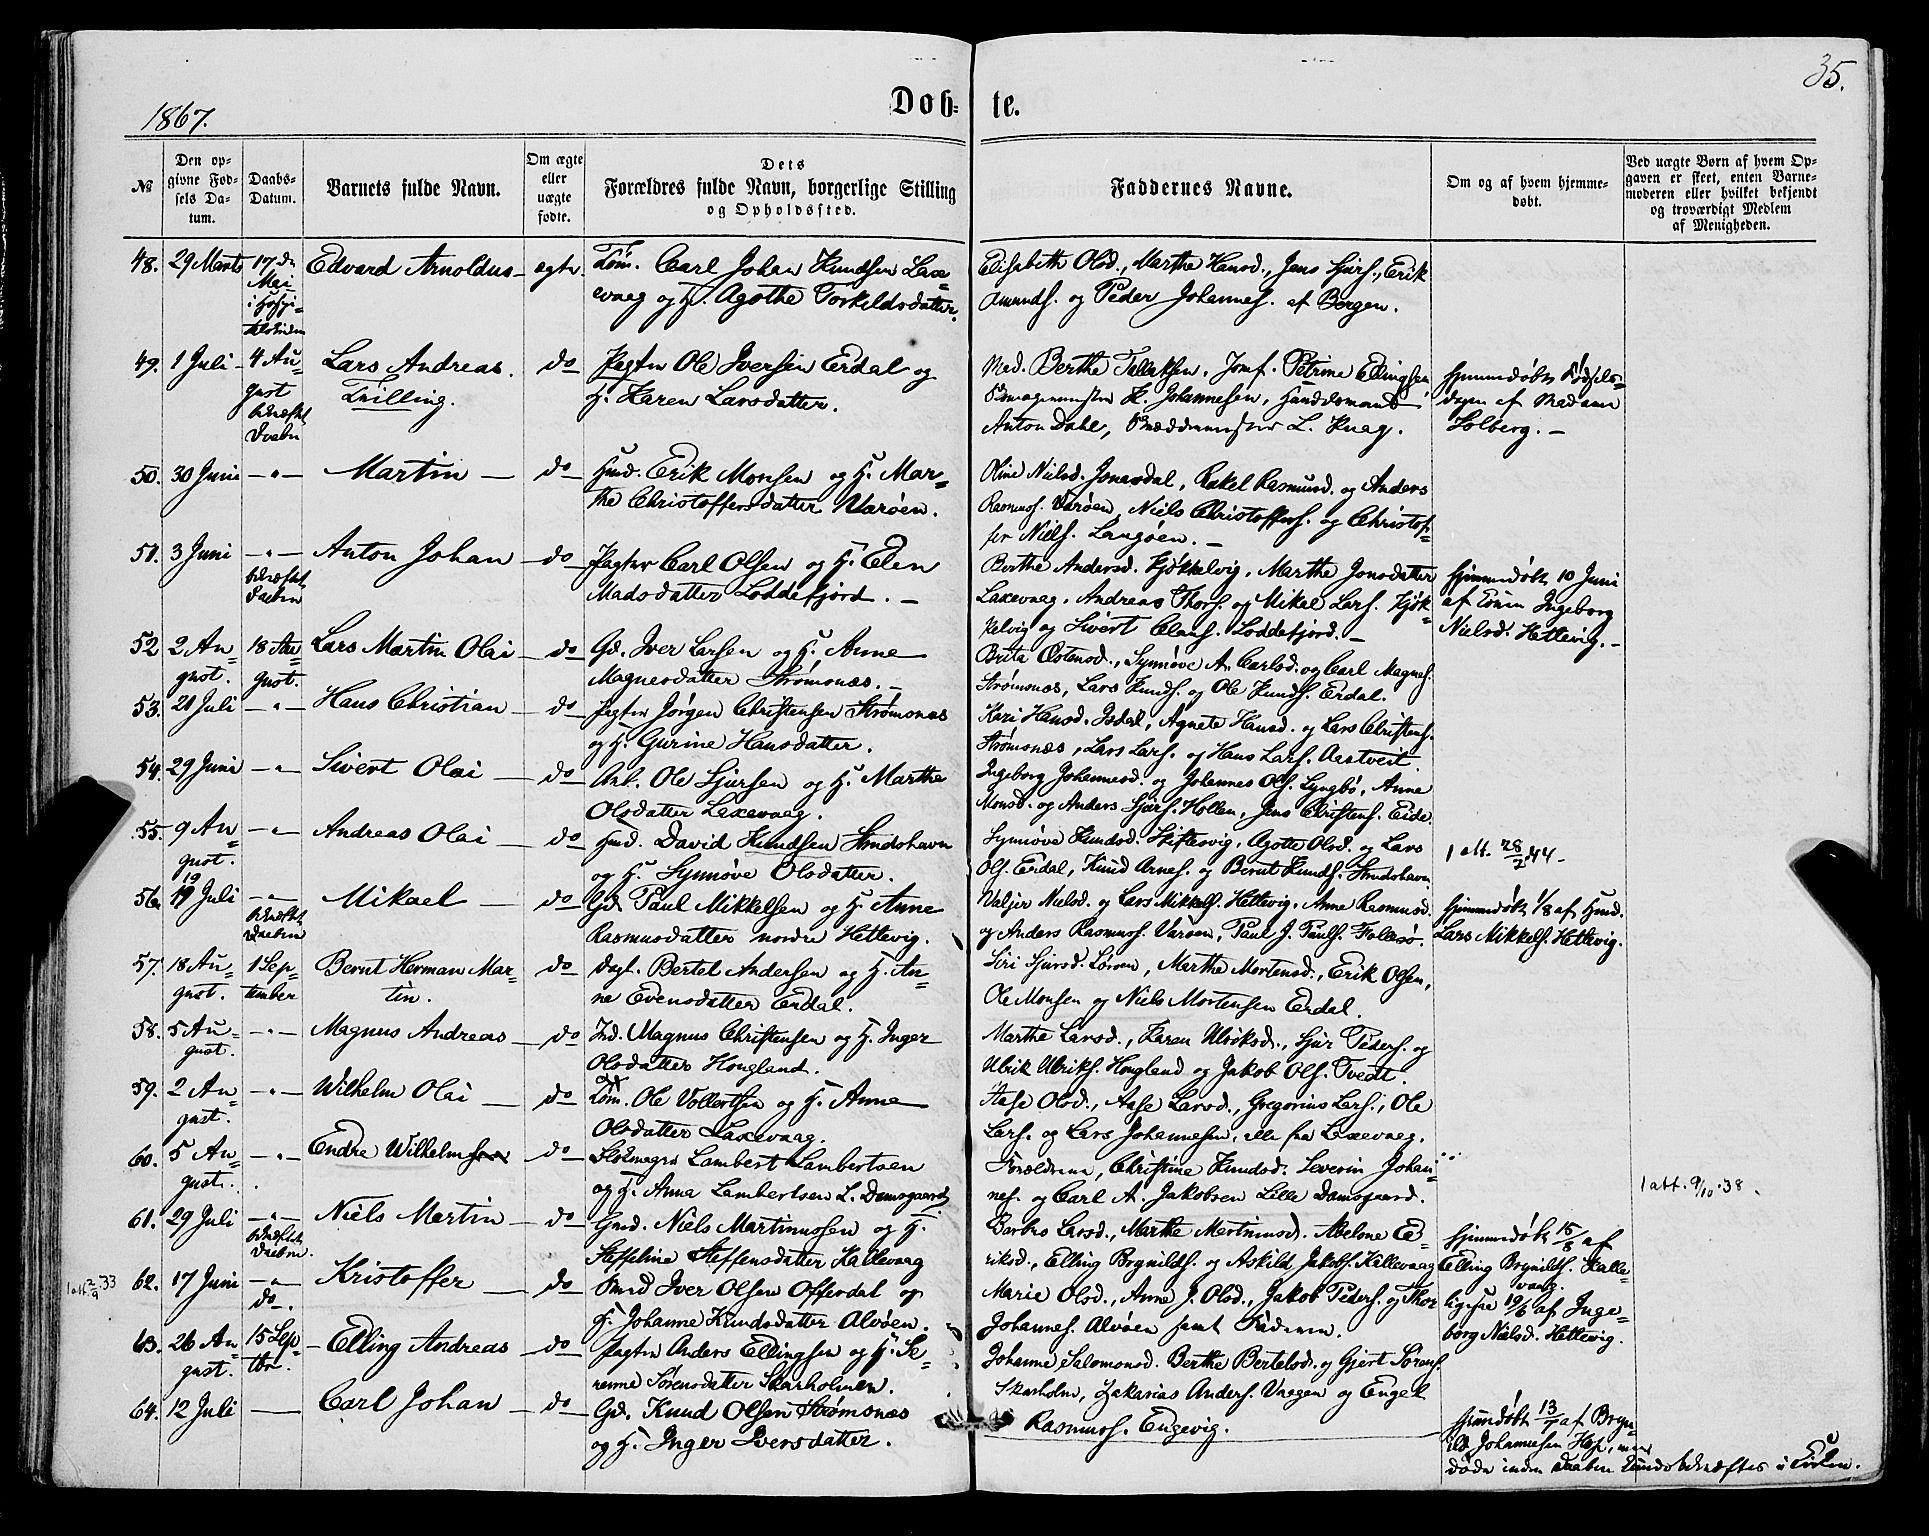 35.
1867.
Døb-
te.
№
Den op-
givne Fød-
sels Da-
tum.
Daabs-
Datum.
Barnets fulde Navn.
Om ægte
eller
uægte
fødte.
Dets
Forældres fulde Navn, borgerlige Stilling
og Opholdssted.
Faddernes Navne.
Om og af hvem hjemme-
døbt.
Ved uægte Børn af hvem Op-
gaven er skeet, enten Barne-
moderen eller hvilket bekjendt
og troværdigt Medlem
af Menigheden.
48. 29 Marts 17 de Edvard Arnoldus ægte Tøm. Carl Johan Knudsen Laxe-
Mai
vaag og H. Agathe Torkeldsdatter.
Elisabeth Olsd., Marthe Hansd., Jens Sjurs., Erik
Amunds. og Peder Johannes. af Bergen.
49. 1 Juli 4 Au- Lars Andreas. do Pagter Ole Iversen Erdal og
gust Tvilling. H. Karen Larsdatter.
bekræftet
Daaben
Mad. Berthe Tollaksen, Jomf. Petrine Ellingsen
H. Johannesen, Handelsmand
Anton Dahl, L. Knag.
Hjemmedøbt Fødsels-
dagen af Madame
Solberg. —
50. 30 Juni —"— Martin — do Huusd. Erik Monsen og H. Mar-
the Christoffersdatter Varøen.
Oline Nielsd. Jonasdal, Rakel Rasmusd. og Anders
Rasmus. Varøen, Niels Christoffers. og Christof-
fer Niels. Langøen. —
51. 3 Juni —"— Anton Johan — do Pagter Carl Olsen og H. Elen
bekræftet Madsdatter Loddefjord. —
Daaben
Berthe Andersd. Kjøkkelvig, Marthe Jonsdatter
Laxevaag, Andreas Thors. og Mikal Lars. Kjøk-
kelvig og Sivert Claus. Loddefjord. —
Hjemmedøbt 10 Juni
af Ingeborg
Nielsd. Hettevig. —
52 2 Au- 18 Au- Lars Martin Olai — do Gd. Iver Larsen og H. Anne
gust. gust. Magnesdatter Strømsnæs. —
Brita Østensd., Synnøve A. Carlsd. og Carl Magnes.
Strømsnæs, Lars Knuds. og Ole Knuds. Erdal.
53. 21 Juli —"— Hans Christian — do Pagter Jørgen Christensen Strømsnæs
og H. Gurine Hansdatter.
Kari Hansd. Isdal, Agnete Hansd. og Lars Christens.
Strømsnæs, Lars Lars. og Hans Lars. Aastveit.
54. 29 Juni —"— Sivert Olai — do Arb. Ole Sjursen og H. Marthe
Olsdatter Laxevaag.
Ingeborg Johannesd. og Johannes Ols. Lyngbø, Anne
Monsd. og Anders Sjurs. Hollen, Jens Christens. Eide.
55. 9 Au- —"— Andreas Olai — do Huusd. David Knudsen Strudshavn
gust. og H. Synnøve Olsdatter.
Synnøve Knudsd. Skiftesvig, Agotte Olsd. og Lars
Ols. Erdal, Knud Arnes. og Berent Knuds. Strudshavn.
1 att. 28/2 44.
56. 19 Juli —"— Mikael — do Gd. Paul Mikkelsen og H. Anne
bekræftet Rasmusdatter nordre Hettevig.
Daaben
Valjer Nielsd. og Lars Mikkels. Hettevig, Anne Rasmusd.
og Anders Rasmus. Varøen, Paul J. Pauls. Follesø.
Hjemmedøbt 1/8 af Huusd.
Lars Mikkels. Hettevig.
57. 18 Au- 1 Sep- Bernt Herman Mar- do Dagl. Bertel Andersen og H. An-
gust. tember tin. ne Evensdatter Erdal.
Siri Sjursd. Søreen, Marthe Mortensd., Erik Olsen,
Ole Monsen og Niels Mortensen Erdal.
58. 5 Au- —"— Magnus Andreas — do Ind. Magnus Christensen og H. Inger
gust. Olsdatter Hougland.
Marthe Larsd., Karen Ulriksd., Sjur Peders. og
Ulrik Ulriks. Hougland og Jakob Ols. Tvedt.
59. 2 Au- —"— Wilhelm Olai — do Tøm. Ole Vollertsen og H. Anne
gust. Olsdatter Laxevaag.
Aase Olsd., Aase Larsd., Gregorius Lars., Ole
Lars. og Lars Johannesen, alle fra Laxevaag.
60. 5 Au- —"— Endre Wilhelm do Lambert Lambertsen
gust. og H. Anna Lambertsen L. Damsgaard
Forældrene, Christine Knudsd. Severin Johan-
nes. og Carl A. Jakobsen Lille Damsgaard.
1 att. 9/10 38.
61. 29 Juli —"— Niels Martin — do Gmd. Niels Martinussen og H.
bekræftet Steffeline Steffensdatter Kallevaag
Daaben.
Barbro Larsd., Marthe Martinusd. Abelone E-
riksd., Elling Brynilds. og Askild Jakobs. Kallevaag
Hjemmedøbt 15/8 af
Elling Brynilds. Kalle-
vaag.
1 att. 2/9 33
62. 17 Juni —"— Kristoffer — do Smed Iver Olsen Offerdal og
do. H. Johanne Knudsdatter Alvøen.
Marie Olsd., Anne J. Olsd., Jakob Peders. og Thor
Johannes. Alvøen samt Faderen.
ligesaa 19/6 af Inge-
borg Nielsd. Hettevig.
63. 26 Au- 15 Sep- Elling Andreas — do Pagter Anders Ellingsen og H. Se-
gust. tbr. renne Sørensdatter Skarholmen.
Johanne Salomonsd. Berthe Bertelsd. og Gjert Sørens.
Skarholm, Zakarias Anders. Vaagen og Engel
Rasmus. Engevig.
64. 12 Juli — Carl Johan — do Gd. Knud Olsen Strømsnæs
og H. Inger Iversdatter.
Hjemmedøbt 13/7 af Bryn-
ild Johannesen Hop, men
døde inden Daaben kunde bekræftes i Kirken.